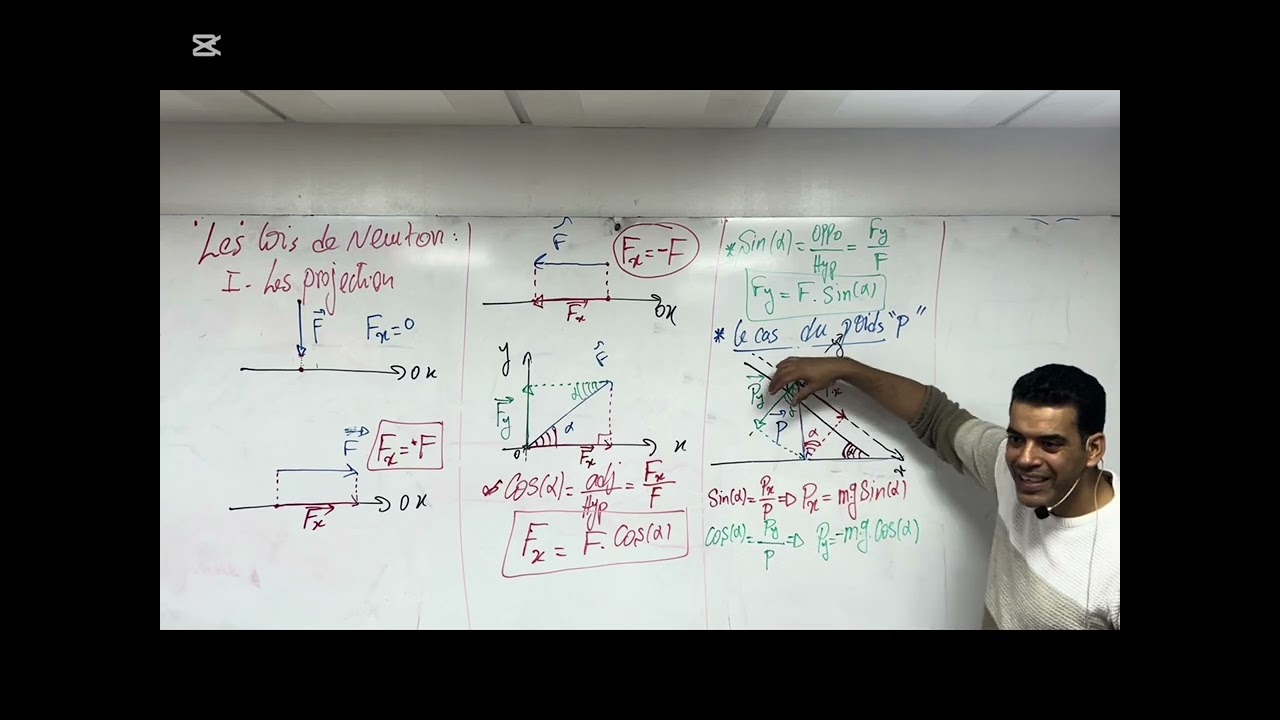 Les lois de Newton:
I- Les projection
F
Fx=0
0x
F
Fx=+F
Fx
0x
F
Fx=-F
Fx
0x
y
F
α
Fy
α
0
Fx
x
Cos(α)=adj/Hyp=Fx/F
Fx = F. Cos(α)
*Sin(α)=oppo/Hyp=Fy/F
Fy=F.Sin(α)
* le cas du poids "P"
y
Py
Px
P
α
x
Sin(α)=Px/P=> Px=mgSin(α)
Cos(α)=Py/P=> Py=-m.g.Cos(α)